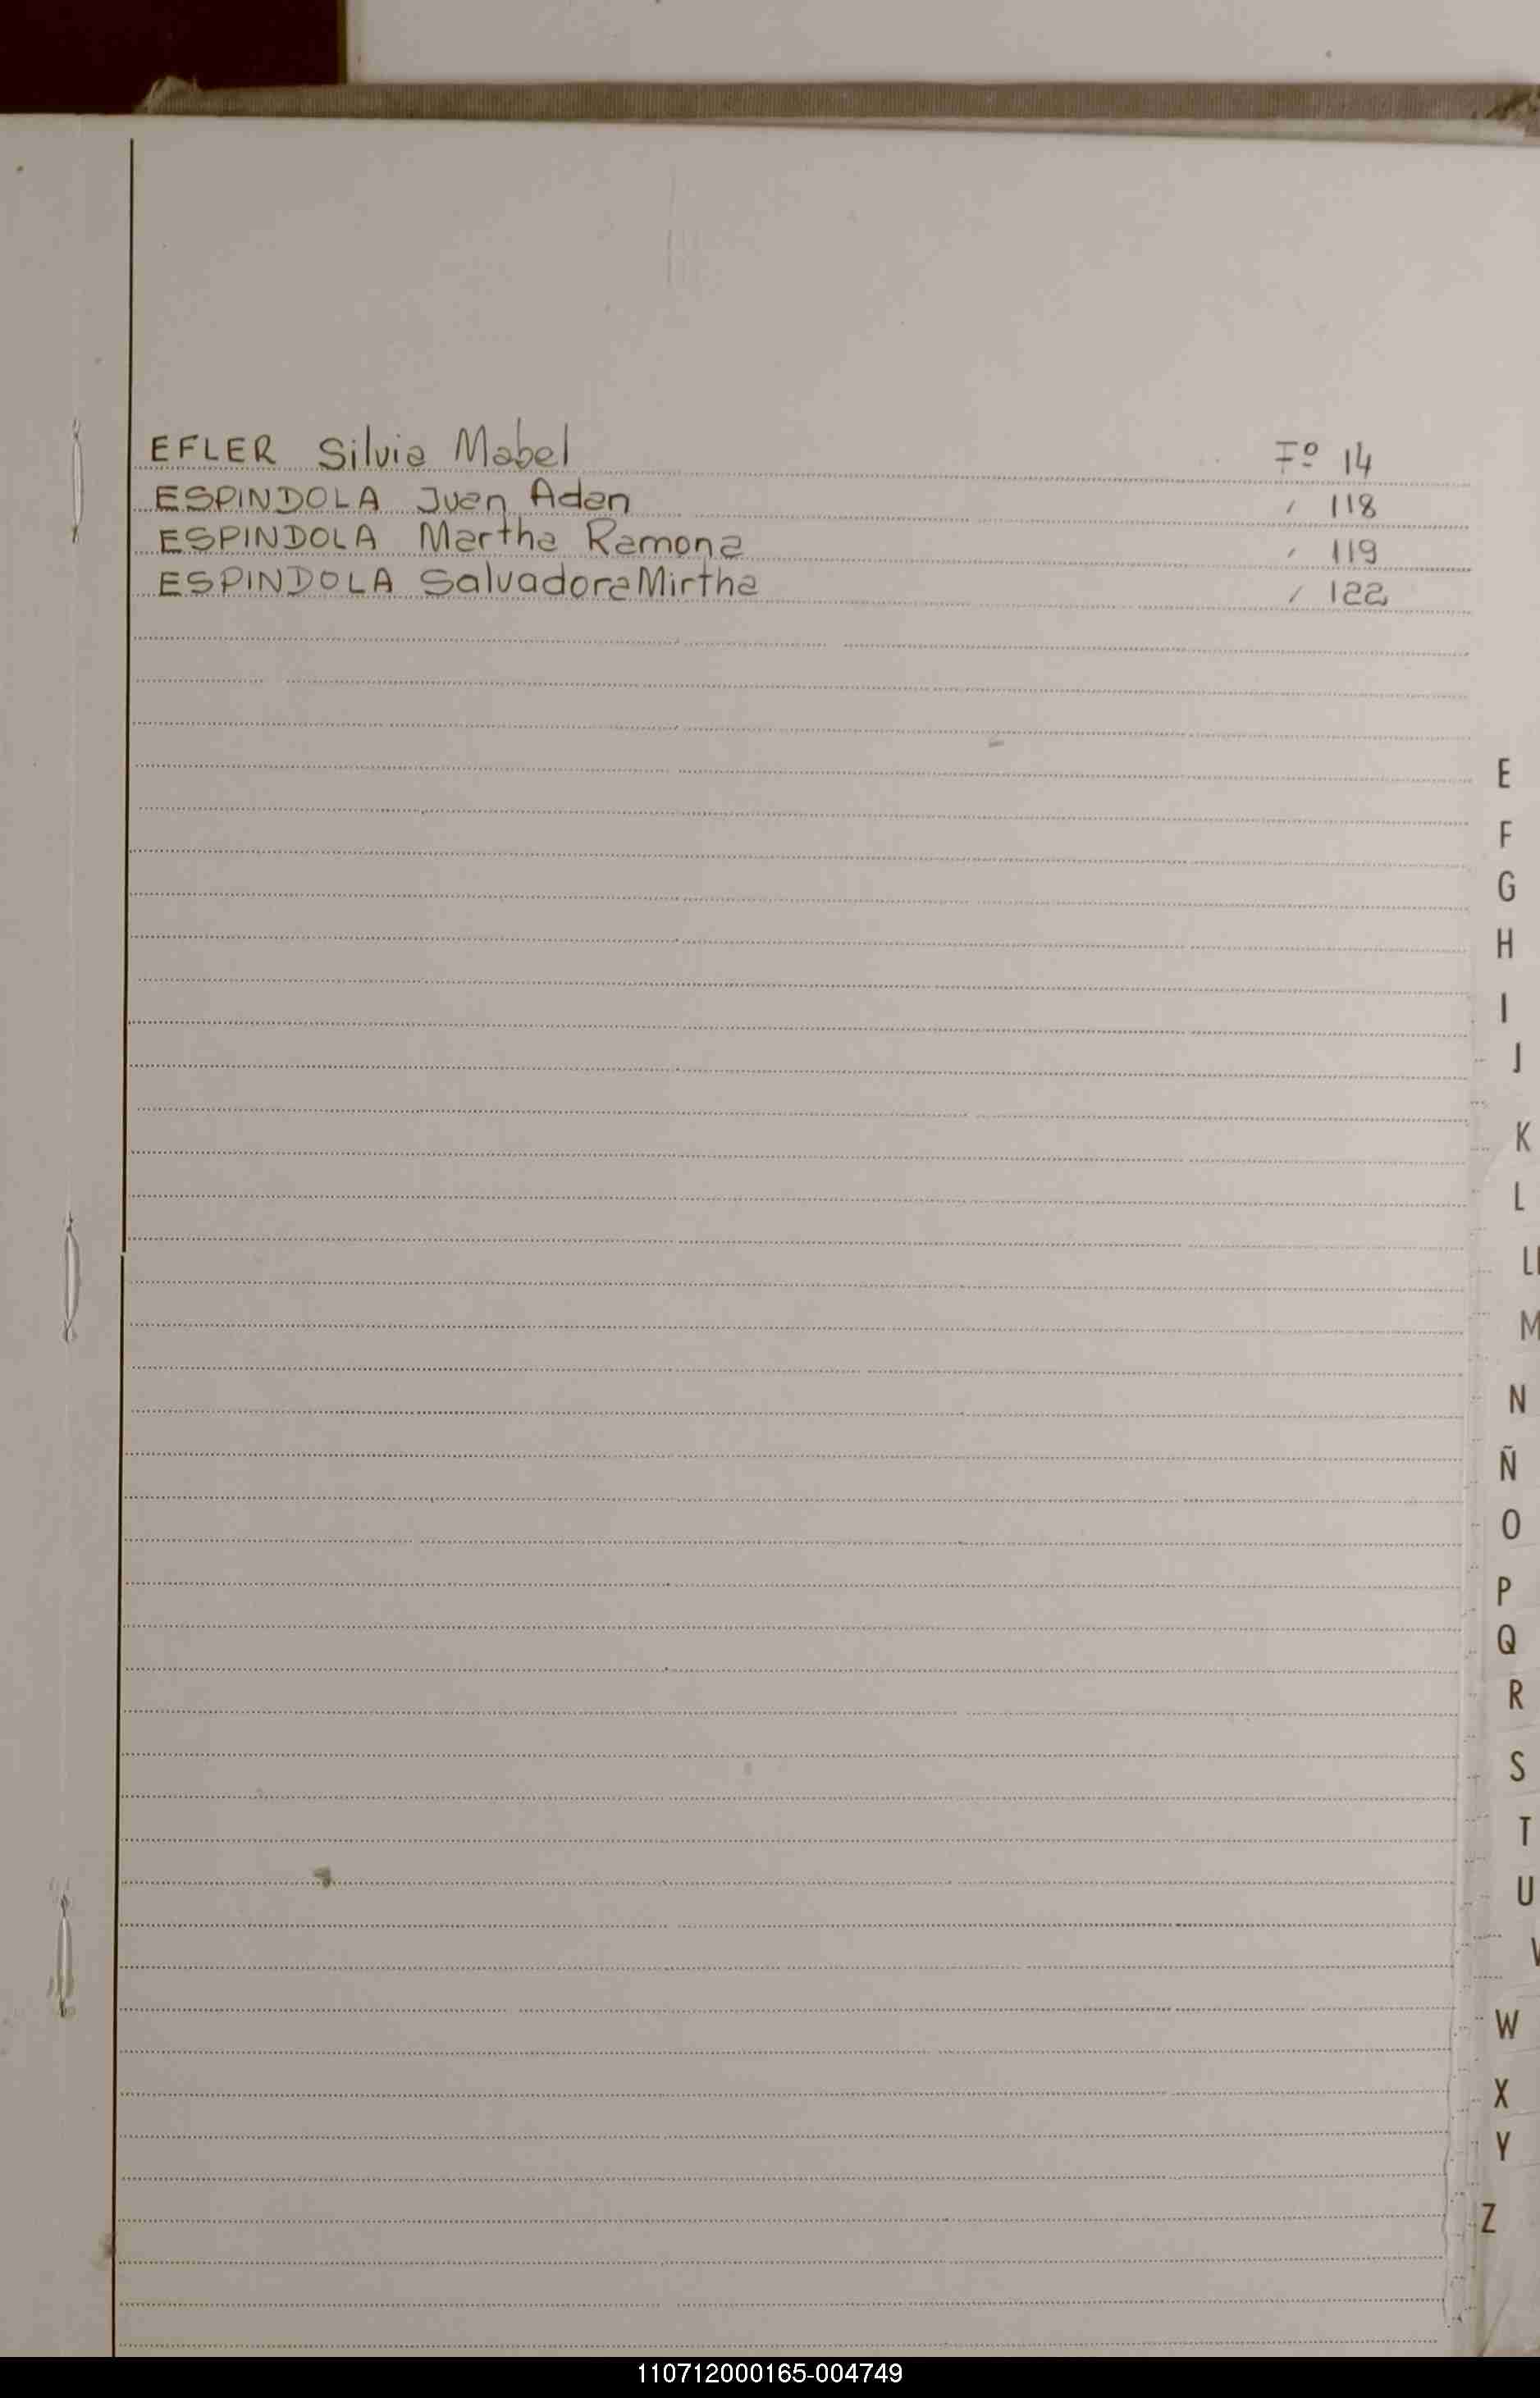 EFLER Silvia Mabel Fº 14
ESPINDOLA Juan Adan ′ 118
ESPINDOLA Martha Ramona ′ 119
ESPINDOLA Salvadora Mirtha ′ 122
E
F
G
H
I
J
K
L
Ll
M
N
Ñ
O
P
Q
R
S
T
U
V
W
X
Y
Z
110712000165-004749